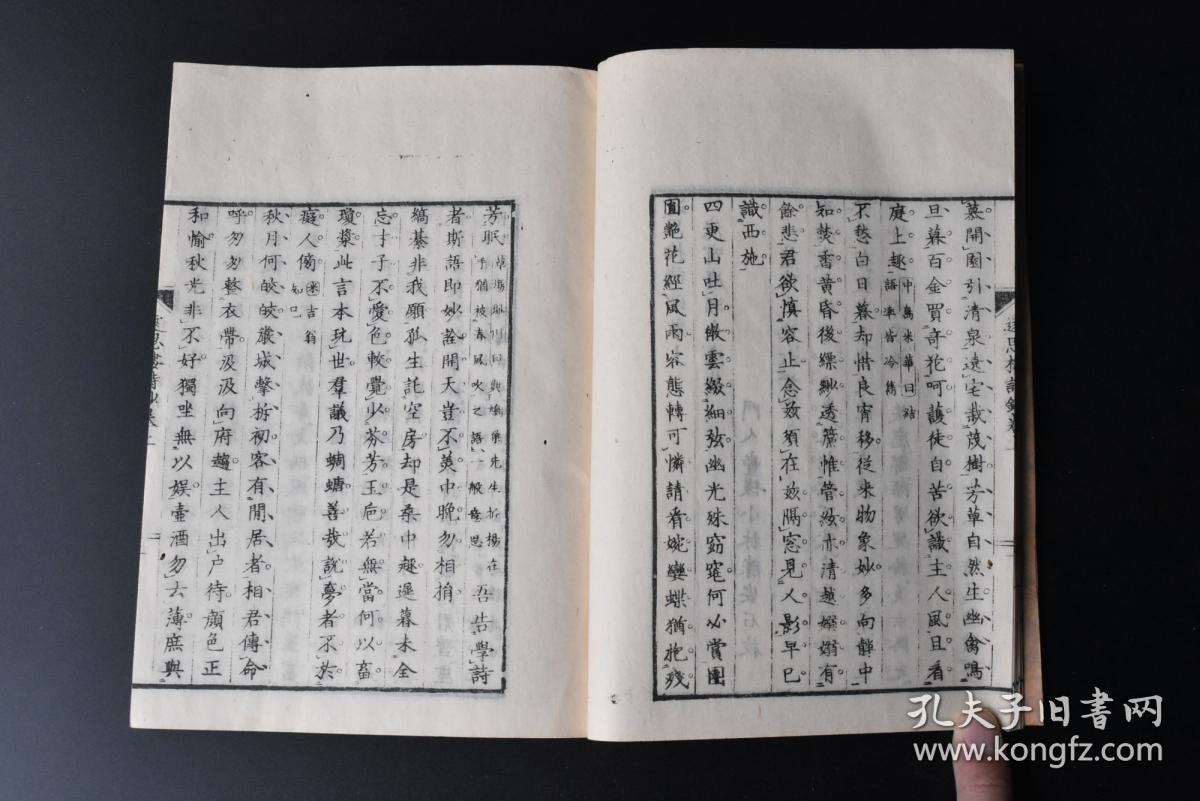 慕開園引清泉遠宅栽茂樹芳草自然生幽禽鳴
旦暮百金買奇花呵護徒自苦欲識主人風且看
庭上趣 中島米華曰結語率皆冷雋
不愁白日暮却惜良宵移從來物象妙多向靜中
知焚香黃昏後縹緲透簾帷管絃亦清越嫋嫋有
餘悲君欲慎容止念茲須在茲隔窓見人影早已
識西施
四更山吐月微雲綴細弦幽光殊窈窕何必賞團
圓艷花經風雨容態轉可憐請看婉孌蝶猶抱殘
遠思樓詩鈔卷
芳眠 曰與先生折楊在乎猶被春風吹之語一般意思 吾告學詩
者斯語即妙詮開天豈不美中晚勿相捐
縞綦非我願孤生託空房却是桑中趣遲暮未全
忘才子不愛色較覺少芬芳玉巵若無當何以畜
瓊漿此言本玩世羣議乃蜩螗善哉說夢者不於
癡人傍 米吉翁知己
秋月何皎皎嚴城擊柝初客有閒居者相君傳命
呼匆匆整衣帶汲汲向府趨主人出戶待顏色正
和愉秋光非不好獨坐無以娛壺酒勿去薄庶與
遠思樓詩鈔卷
孔夫子旧書网
www.kongfz.com